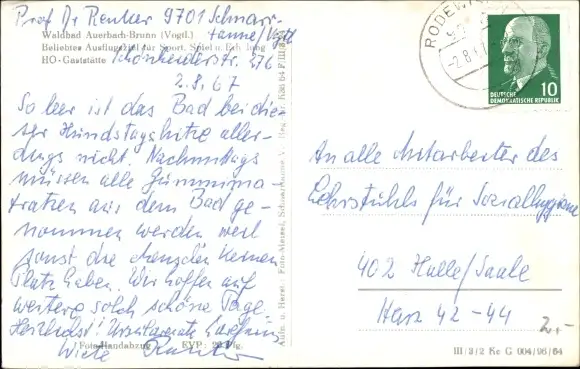 Prof Dr Renker 9701 Schnarr-
tanne/Vgtl
Waldbad Auerbach-Brunn (Vogtl.)
Beliebtes Ausflugsziel für Sport, Spiel u. Erholung
HO-Gaststätte
Schönheiderstr. 276
2.8.67
So leer ist das Bad bei die-
ser Hundstagshitze aller-
dings nicht. Nachmittags
müssen alle Gummima-
tratzen aus dem Bad ge-
nommen werden weil
sonst die Menschen keinen
Platz haben. Wir hoffen auf
weitere solch schöne Tage.
Herzlichst!
Renker
Foto-Handabzug EVP: 20 Pfg.
Aufn. u. Herst.: Foto-Menzel,
RODEWISCH
-2.8.
10
DEUTSCHE
DEMOKRATISCHE REPUBLIK
An alle Mitarbeiter des
Lehrstuhls für Sozialhygiene
402 Halle/Saale
Harz 42-44
2.-
III/3/2 Ke G 004/96/64